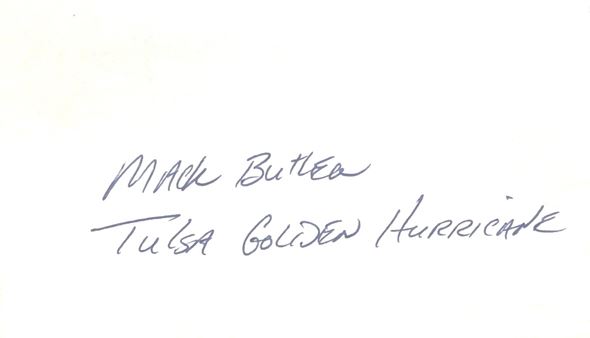 Mack Butler
Tulsa Golden Hurricane